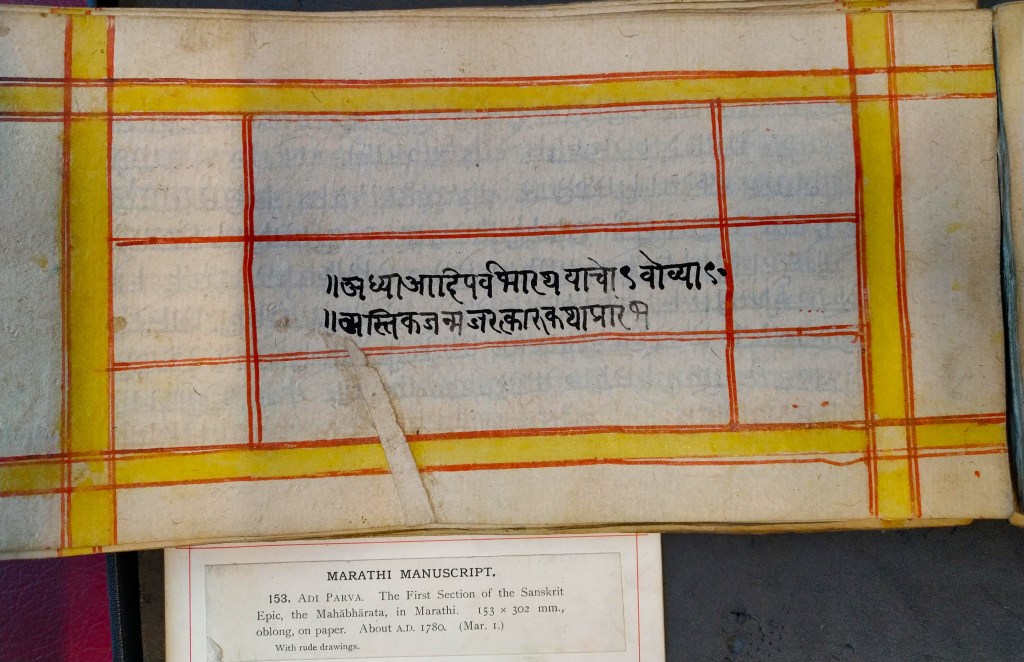 ॥अध्याआदिपर्वभारथयाचो९ वोव्या९॰
॥अस्तिकजन्मजरत्कारुकथाप्रारंभ
MARATHI MANUSCRIPT.
153. ADI PARVA. The First Section of the Sanskrit
Epic, the Mahābhārata, in Marathi. 153 × 302 mm.,
oblong, on paper. About A.D. 1780. (Mar. 1.)
With rude drawings.